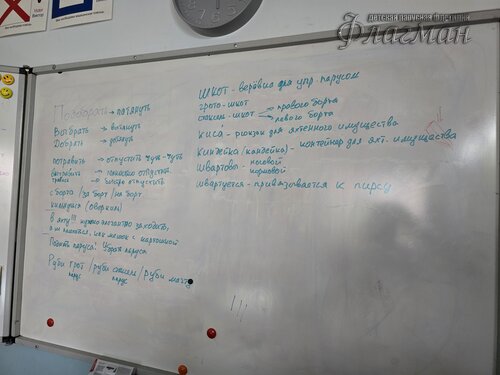 детская парусная флотилия
Флагман
Подобрать → потянуть
Выбрать → вытянуть
Добрать → дотянуть
потравить → отпустить чуть-чуть
вытравить → полностью отпустить
травим → быстро отпустить
с борта / за борт / на борт
килнулся (оверкиль)
В яхту!!! нужно элегантно заходить,
а не ломиться, как мешок с картошкой
Ронять паруса! Убрать паруса
Руби грот / руби стаксель / руби мачту
парус парус
ШКОТ - верёвка для упр. парусом
грота-шкот
стаксель-шкот → правого борта
→ левого борта
киса - рюкзак для яхтенного имущества
Киндейка (кандейка) - контейнер для яхт. имущества
Швартовы - носовой
кормовой
швартуется - привязывается к пирсу